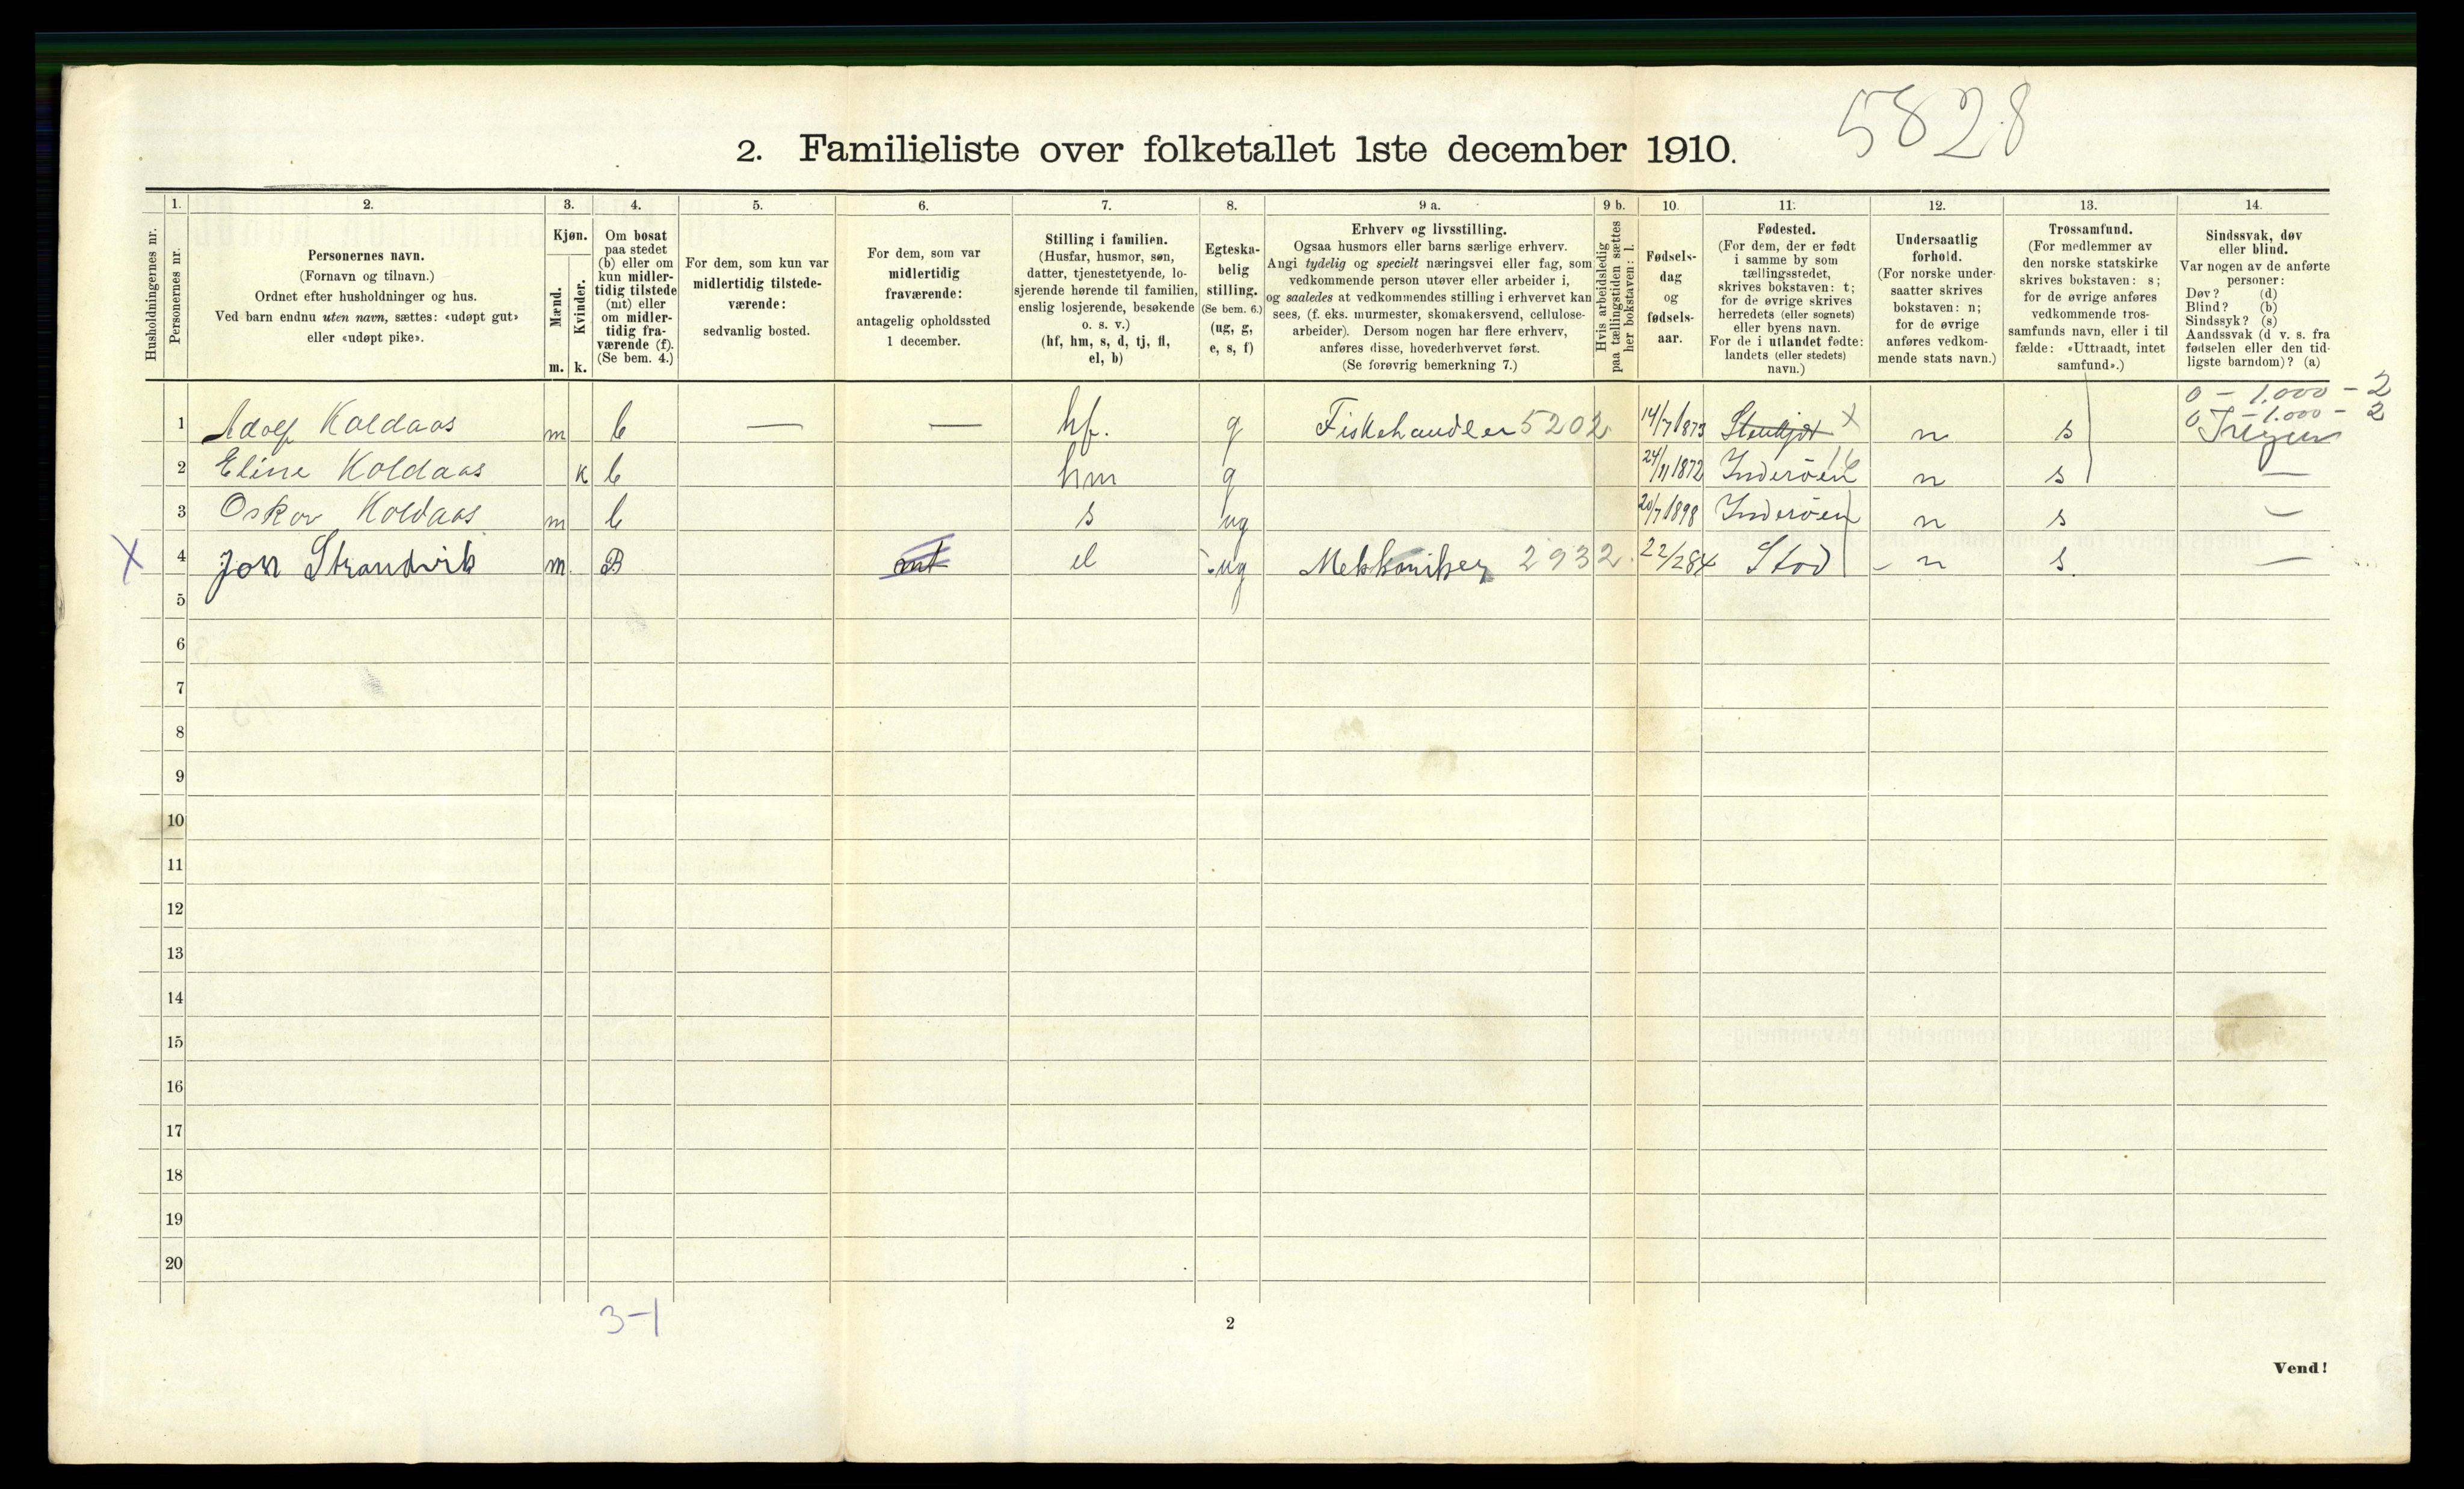 5828
2. Familieliste over folketallet 1ste december 1910.
1. 2. 3. 4. 5. 6. 7. 8. 9 a. 9 b. 10. 11. 12. 13. 14.
Husholdningernes nr.
Personernes nr.
Personernes navn.
(Fornavn og tilnavn.)
Ordnet efter husholdninger og hus.
Ved barn endnu uten navn, sættes: «udøpt gut»
eller «udøpt pike».
Kjøn.
Mænd.
Kvinder.
m. k.
Om bosat
paa stedet
(b) eller om
kun midler-
tidig tilstede
(mt) eller
om midler-
tidig fra-
værende (f).
(Se bem. 4.)
For dem, som kun var
midlertidig tilstede-
værende:
sedvanlig bosted.
For dem, som var
midlertidig
fraværende:
antagelig opholdssted
1 december.
Stilling i familien.
(Husfar, husmor, søn,
datter, tjenestetyende, lo-
sjerende hørende til familien,
enslig losjerende, besøkende
o. s. v.)
(hf, hm, s, d, tj, fl,
el, b)
Egteska-
belig
stilling.
(Se bem. 6.)
(ug, g,
e, s, f)
Erhverv og livsstilling.
Ogsaa husmors eller barns særlige erhverv.
Angi tydelig og specielt næringsvei eller fag, som
vedkommende person utøver eller arbeider i,
og saaledes at vedkommendes stilling i erhvervet kan
sees, (f. eks. murmester, skomakersvend, cellulose-
arbeider). Dersom nogen har flere erhverv,
anføres disse, hovederhvervet først.
(Se forøvrig bemerkning 7.)
Hvis arbeidsledig
paa tællingstiden sættes
her bokstaven: l.
Fødsels-
dag
og
fødsels-
aar.
Fødested.
(For dem, der er født
i samme by som
tællingsstedet,
skrives bokstaven: t;
for de øvrige skrives
herredets (eller sognets)
eller byens navn.
For de i utlandet fødte:
landets (eller stedets)
navn.)
Undersaatlig
forhold.
(For norske under-
saatter skrives
bokstaven: n;
for de øvrige
anføres vedkom-
mende stats navn.)
Trossamfund.
(For medlemmer av
den norske statskirke
skrives bokstaven: s;
for de øvrige anføres
vedkommende tros-
samfunds navn, eller i til
fælde: «Uttraadt, intet
samfund».)
Sindssvak, døv
eller blind.
Var nogen av de anførte
personer:
Døv? (d)
Blind? (b)
Sindssyk? (s)
Aandssvak (d v. s. fra
fødselen eller den tid-
ligste barndom)? (a)
0 - 1.000 - 2
0 - 1.000 - 2
1 Adolf Koldaas m b — — hf. g Fiskehandler 5202 14/7 1873 Stenkjær X n s Ingen
2 Eline Koldaas k b hm g 24/11 1872 Inderøen n s —
3 Oskar Koldaas m b s ug 20/7 1898 Inderøen n s —
X 4 Jon Strandvik m. B mt el ug Mekkaniker 2932. 22/2 84 Stod - n s. —
5
6
7
8
9
10
11
12
13
14
15
16
17
18
19
20
3-1
2
Vend!